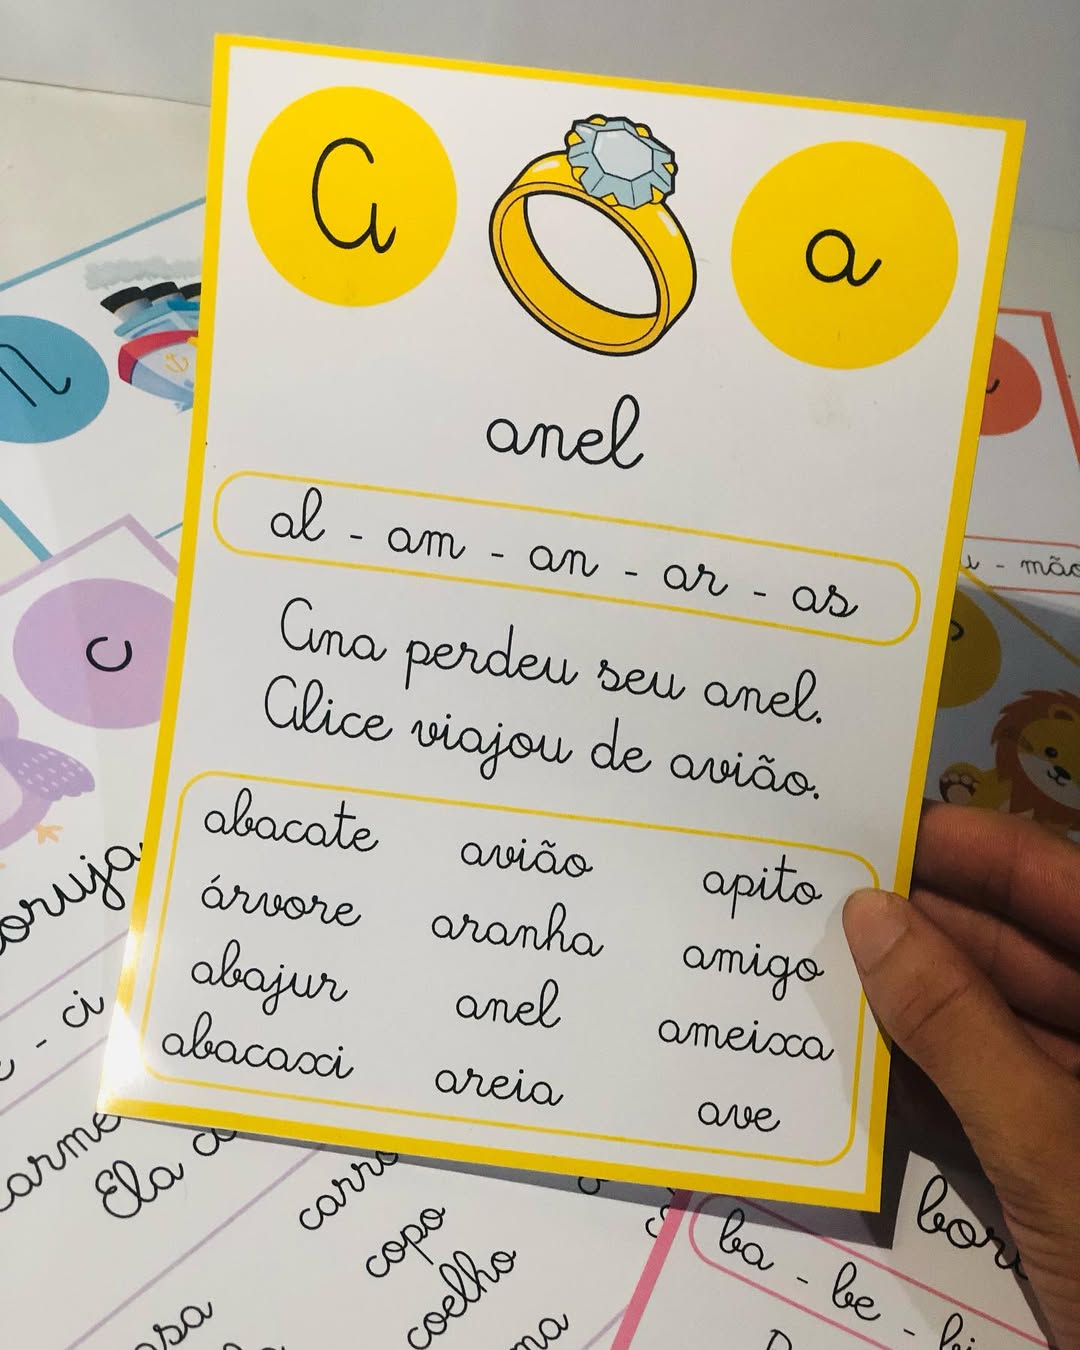 A a
anel
al - am - an - ar - as
Ana perdeu seu anel.
Alice viajou de avião.
abacate avião apito
árvore aranha amigo
abajur anel ameixa
abacaxi areia ave
n
c
coruja
- ci
Ela
carro
copo
coelho
- mão
ba - be -